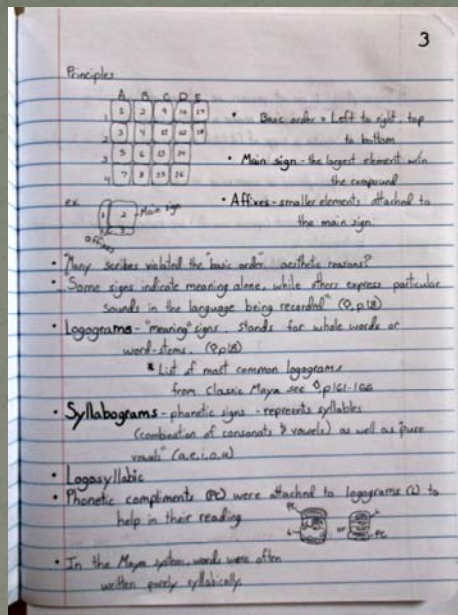 3
Principles
A B C D E
1 1 2 9 10 17
2 3 4 11 12 18
3 5 6 13 14
4 7 8 15 16
• Basic order = Left to right, top
to bottom
• Main sign - the largest element w/in
the compound
• Affixes - smaller elements attachnd to
the main sign.
ex
1 2 Main sign
3
affixes
• "Many scribes violated the "basic order" aesthetic reasons?
• "Some signs indicate meaning alone, while others express particular
sounds in the language being recorded" (p.18)
• Logograms - "meaning" signs. Stands for whole words or
word-stems. (p18)
* List of most common logograms
from Classic Maya see p161-166
• Syllabograms - phonetic signs - reprents syllables
(combination of consonats & vowels) as well as "pure
vowels" (a,e,i,o,u)
• Logosyllabic
• Phonetic compliments (PC) were attachnd to logograms (L) to
help in their reading
PC
L or L
PC
• In the Maya system, words were often
written purely syllabically.